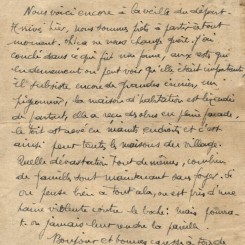 Nous voici encore à la veille du départ.
Arrivés hier, nous sommes prêts à partir à tout
moment. Mais ne nous change guère. J'ai
conclu dans ce qui fut nos fermes, aux dits qui
anciennement on peut voir qu'elle était importante
il subsiste encore de grandes écuries, un
pigeonnier, la maison d'habitation est lézardée
de partout, elle a reçu des obus en pleine façade.
le toit est crevé en maints endroits et c'est
ainsi pour toutes les maisons du village.
Quelle dévastation tout de même, combien
de familles sont maintenant sans foyer. Si
on pense bien à tout cela, on est pris d'une
haine violente contre le boche! mais pourra-
t-on jamais leur rendre la pareille.
Bonjour et bonnes caresses à toi de